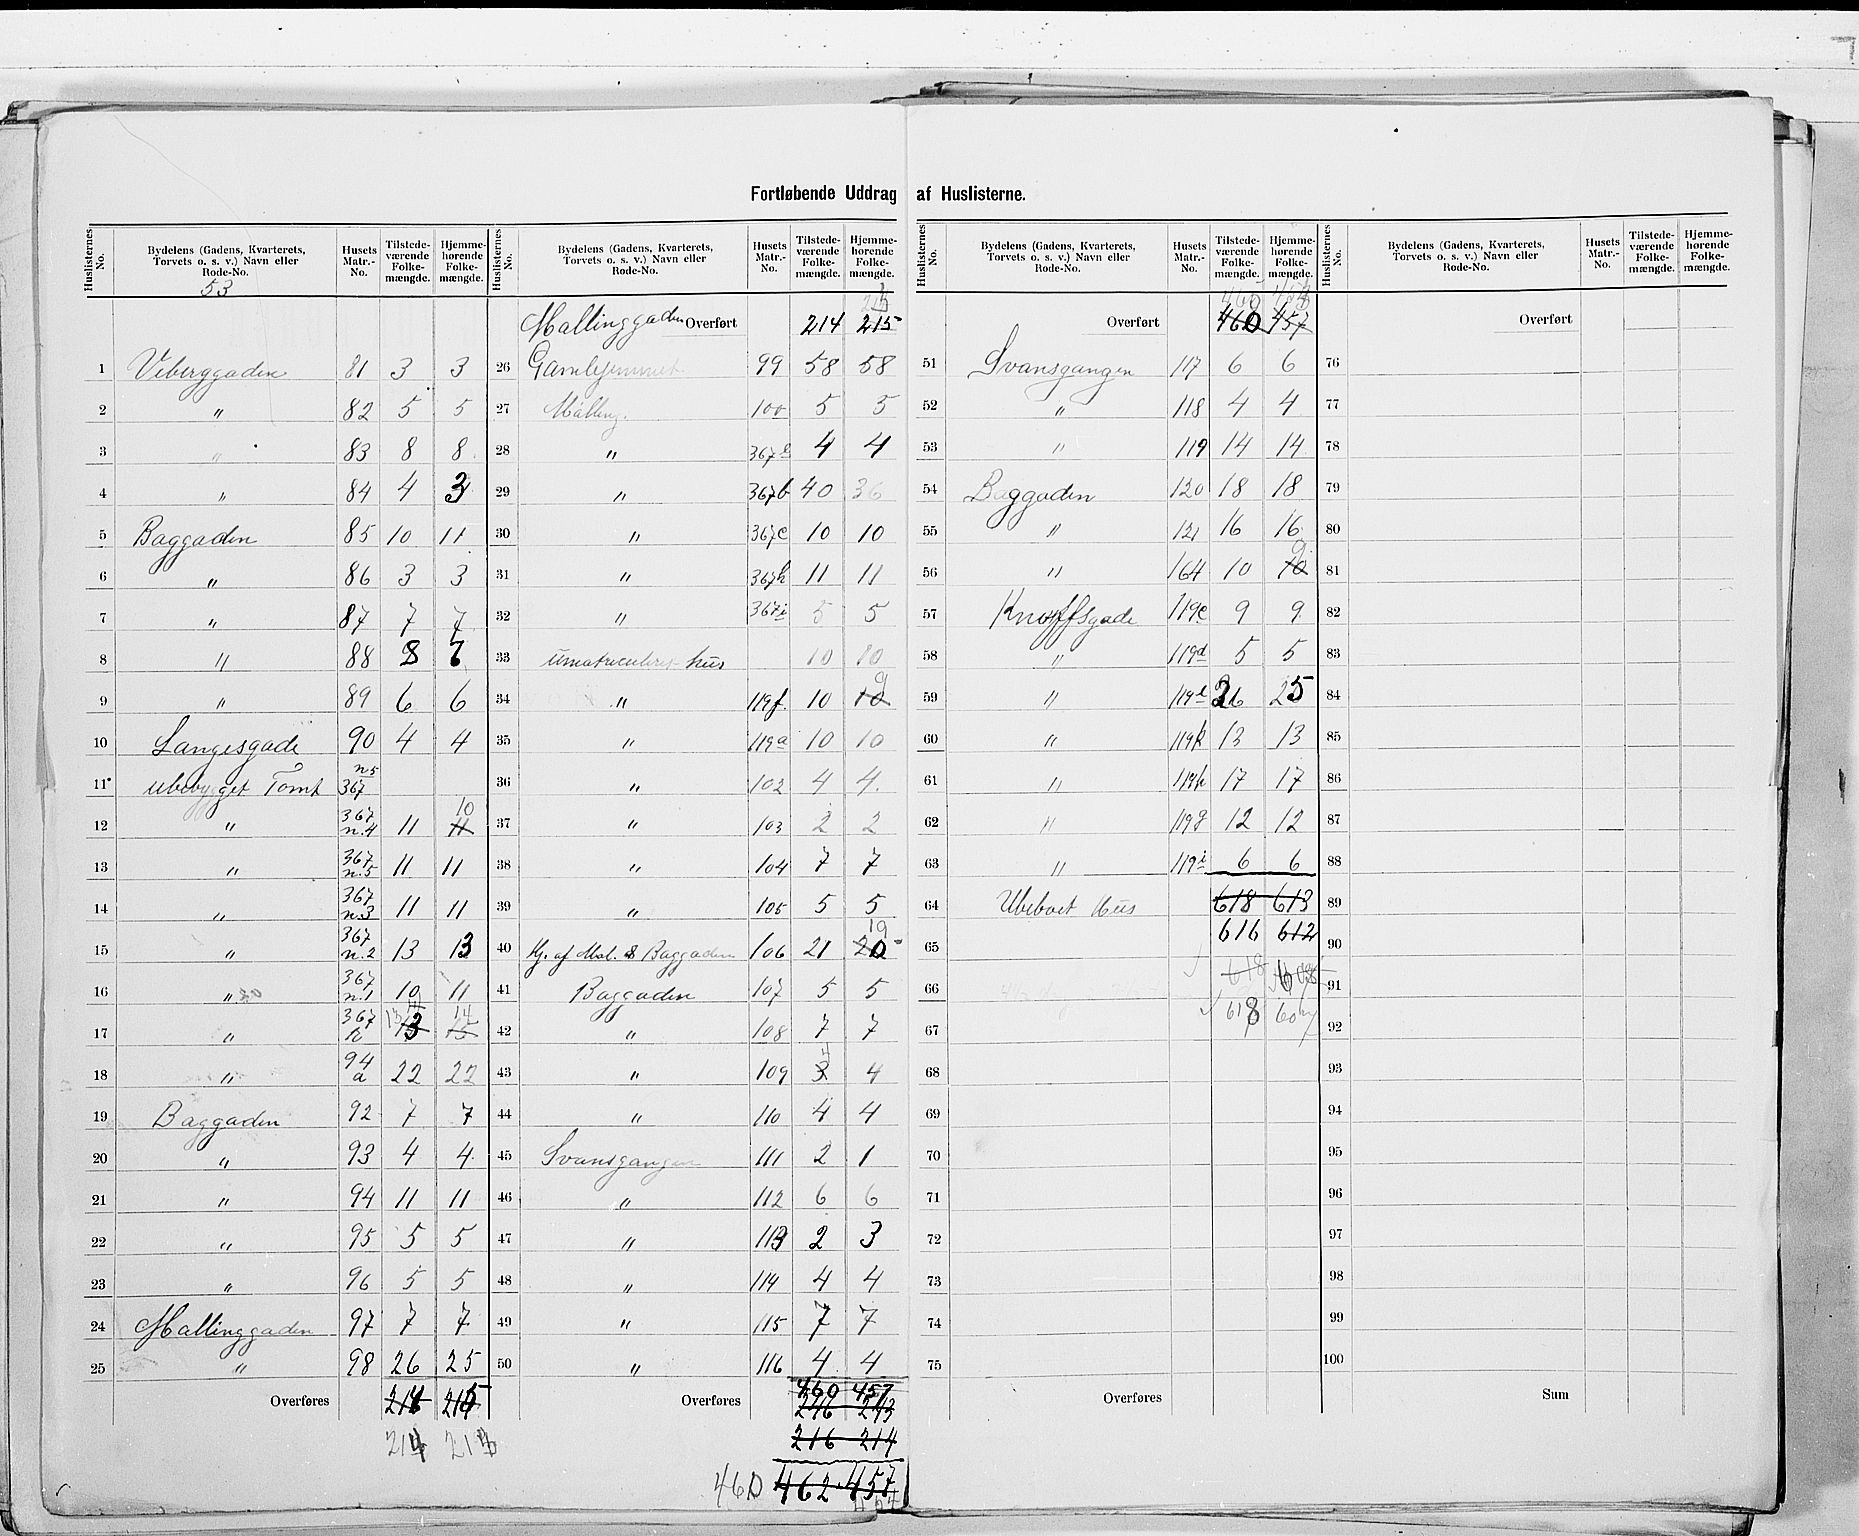 Fortløbende Uddrag af Huslisterne.
Huslisternes No. | Bydelens (Gadens, Kvarterets, Torvets o. s. v.) Navn eller Rode-No. | Husets Matr.-No. | Tilstedeværende Folkemængde. | Hjemmehørende Folkemængde.
53
1 Viberggaden 81 3 3
2 " 82 5 5
3 " 83 8 8
4 " 84 4 3
5 Baggaden 85 10 11
6 " 86 3 3
7 " 87 7 7
8 " 88 8 7
9 " 89 6 6
10 Langesgade 90 4 4
11 Ubebygget Tomt 367 n5
12 " 367 n.4 11 11 10
13 " 367 n.5 11 11
14 " 367 n3 11 11
15 " 367 n.2 13 13
16 " 367 n.1 10 11
17 " 367 13 14
18 " 94 a 22 22
19 Baggaden 92 7 7
20 " 93 4 4
21 " 94 11 11
22 " 95 5 5
23 " 96 5 5
24 Mallinggaden 97 7 7
25 " 98 26 25
Overføres 214 215
214
Huslisternes No. | Bydelens (Gadens, Kvarterets, Torvets o. s. v.) Navn eller Rode-No. | Husets Matr.-No. | Tilstedeværende Folkemængde. | Hjemmehørende Folkemængde.
Mallinggaden Overført 214 215
26 Gamlehjemmet 99 58 58
27 Malling. 100 5 5
28 " 367 4 4
29 " 367b 40 36
30 " 367c 10 10
31 " 367h 11 11
32 " 367i 5 5
33 Umatriculeret hus 10 10
34 " 119f. 10 10 9
35 " 119a 10 10
36 " 102 4 4
37 " 103 2 2
38 " 104 7 7
39 " 105 5 5
40 Hj. af Mal. & Baggaden 106 21 20 19
41 Baggaden 107 5 5
42 " 108 7 7
43 " 109 3 4 4
44 " 110 4 4
45 Svansgangen 111 2 1
46 " 112 6 6
47 " 113 2 3
48 " 114 4 4
49 " 115 7 7
50 " 116 4 4
Overføres 460 457
246 243
216 214
460 462 457
Huslisternes No. | Bydelens (Gadens, Kvarterets, Torvets o. s. v.) Navn eller Rode-No. | Husets Matr.-No. | Tilstedeværende Folkemængde. | Hjemmehørende Folkemængde.
Overført 460 457
51 Svansgangen 117 6 6
52 " 118 4 4
53 " 119 14 14
54 Baggaden 120 18 18
55 " 121 16 16
56 " 164 10 10 9
57 Knoffsgade 119c 9 9
58 " 119d 5 5
59 " 119e 26 25
60 " 119k 13 13
61 " 119h 17 17
62 " 119g 12 12
63 " 119i 6 6
64 Ubeboet Hus 618 613
65 616 612
66 618 608
67 618 607
68
69
70
71
72
73
74
75
Overføres
Huslisternes No. | Bydelens (Gadens, Kvarterets, Torvets o. s. v.) Navn eller Rode-No. | Husets Matr.-No. | Tilstedeværende Folkemængde. | Hjemmehørende Folkemængde.
Overført
76
77
78
79
80
81
82
83
84
85
86
87
88
89
90
91
92
93
94
95
96
97
98
99
100
Sum